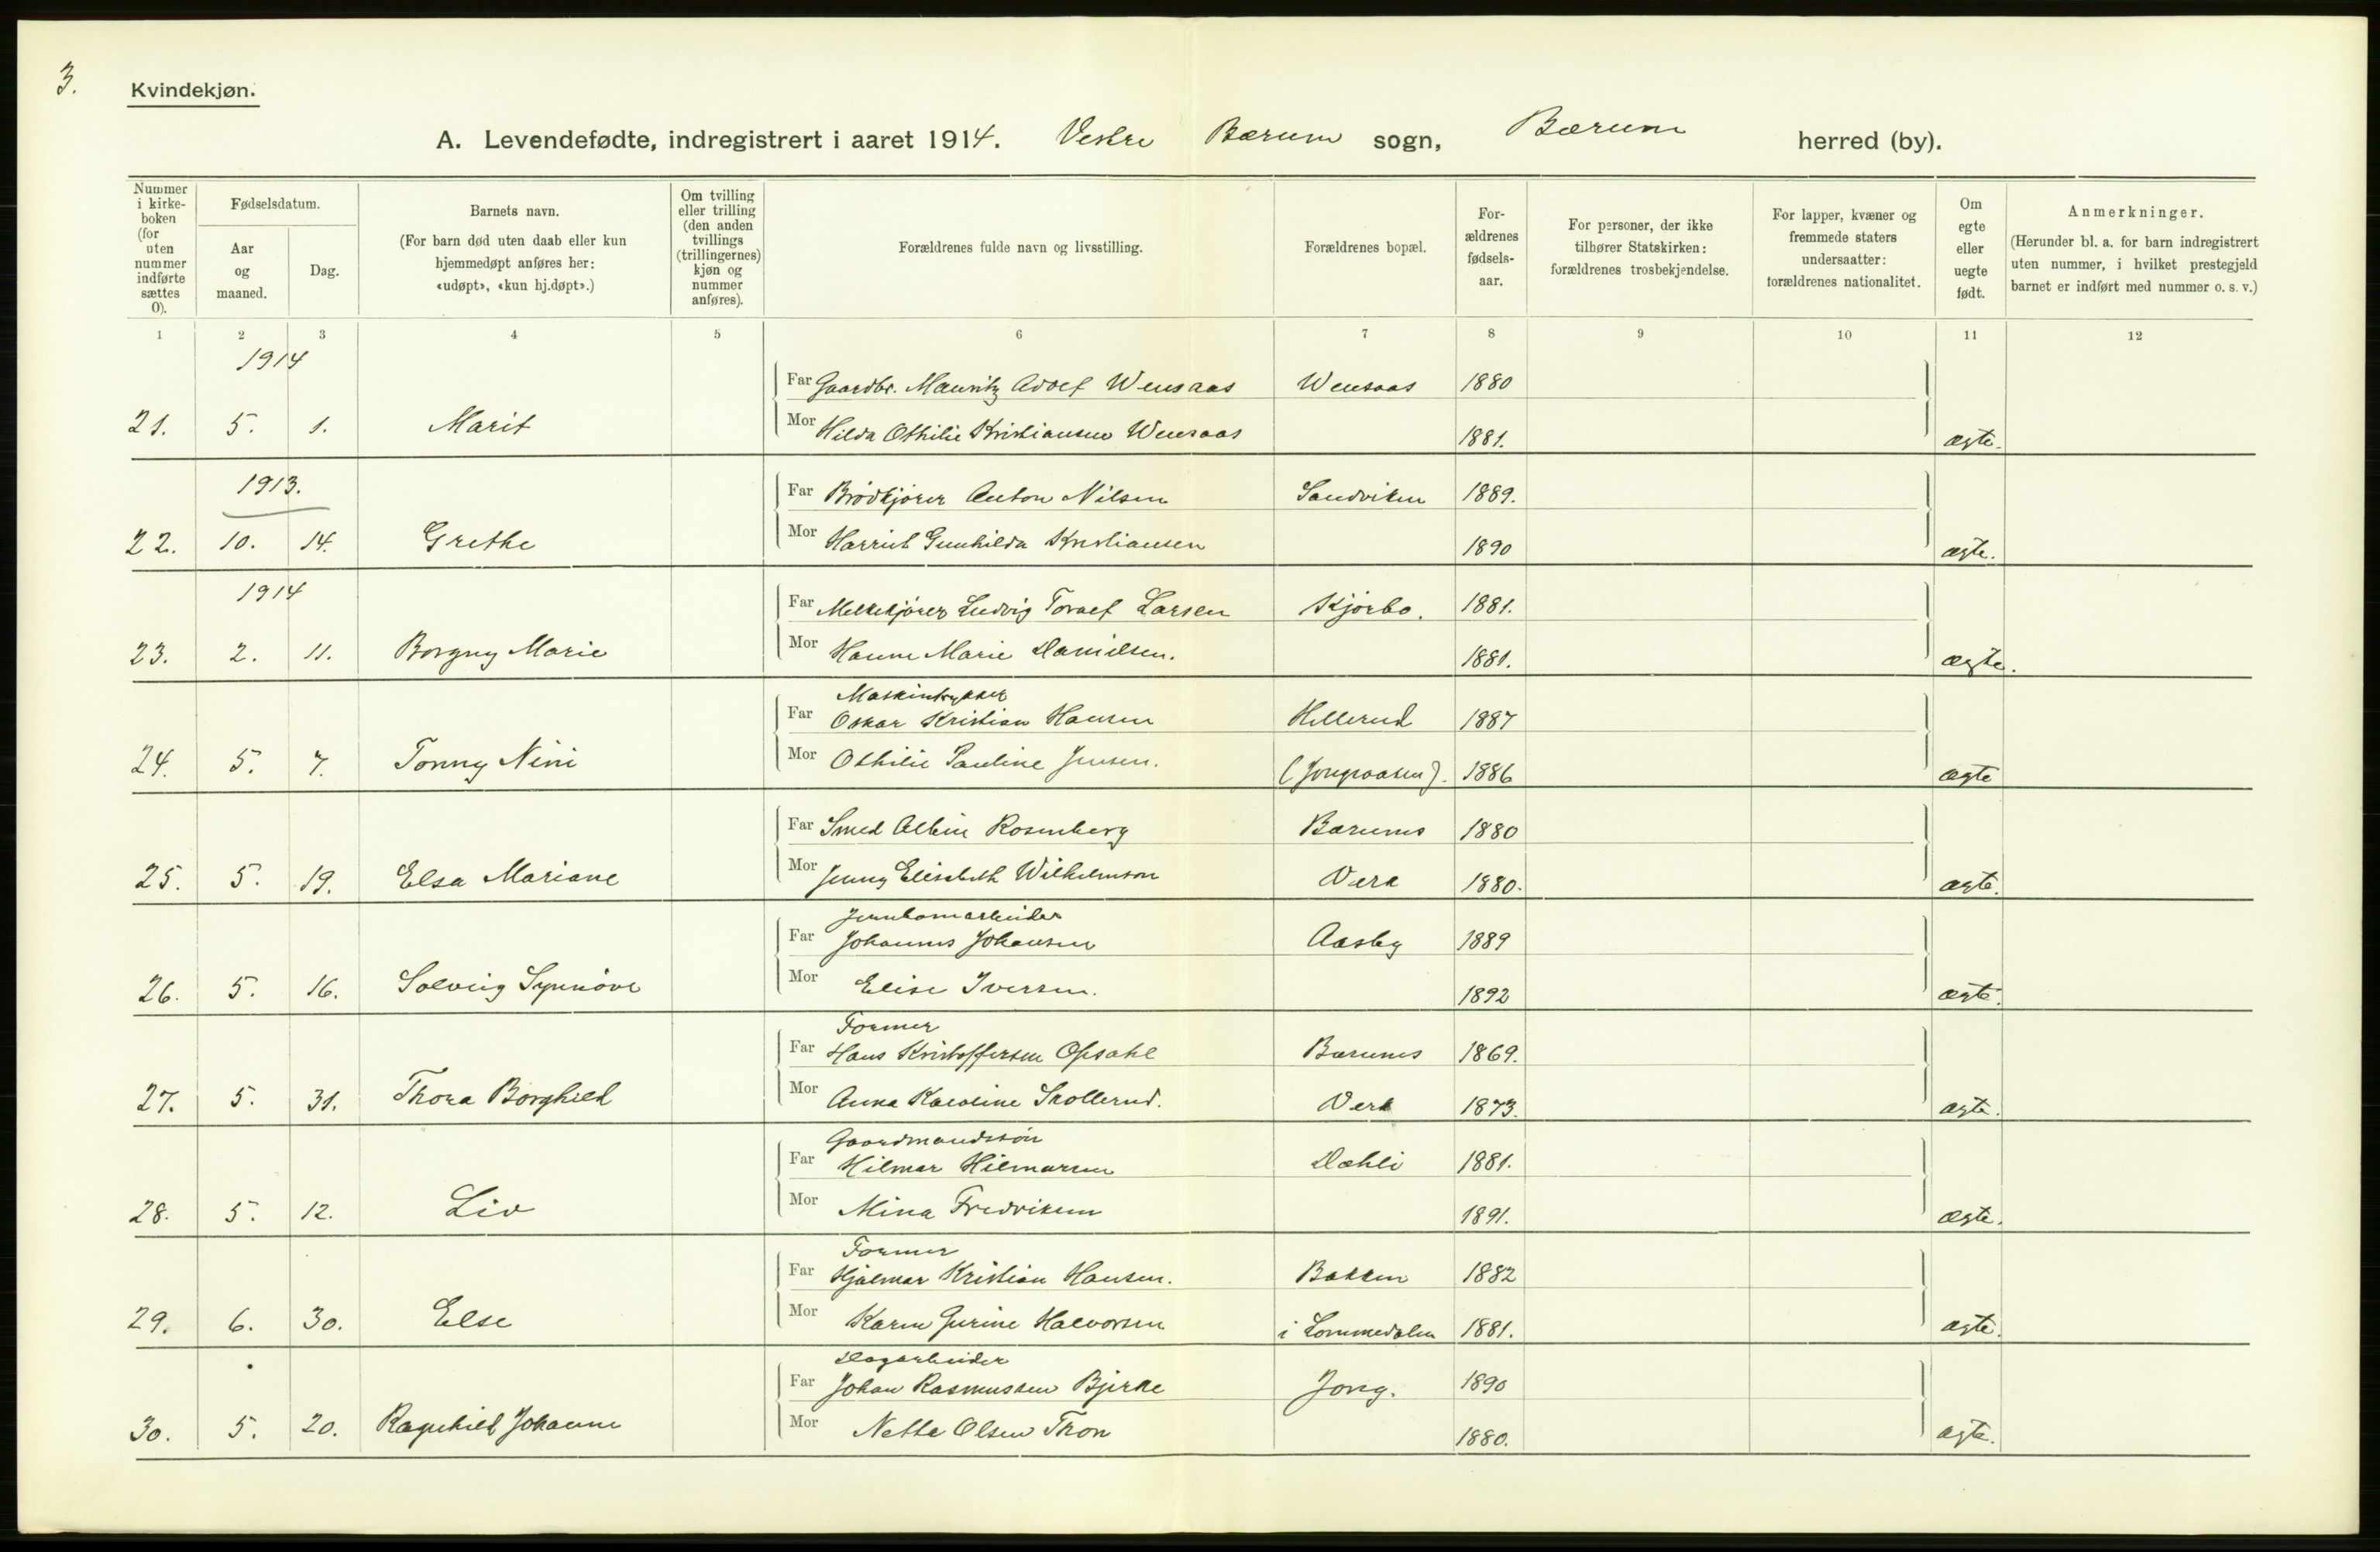 3.
Kvindekjøn.
A. Levendefødte, indregistrert i aaret 1914. Vestre Bærum sogn, Bærum herred (by).
Nummer i kirkeboken (for uten nummer indførte sættes 0).
Fødselsdatum.
Aar og maaned.
Dag.
Barnets navn.
(For barn død uten daab eller kun hjemmedøpt anføres her: «udøpt», «kun hj.døpt».)
Om tvilling eller trilling (den anden tvillings (trillingernes) kjøn og nummer anføres).
Forældrenes fulde navn og livsstilling.
Forældrenes bopæl.
Forældrenes fødselsaar.
For personer, der ikke tilhører Statskirken: forældrenes trosbekjendelse.
For lapper, kvæner og fremmede staters undersaatter: forældrenes nationalitet.
Om egte eller uegte født.
Anmerkninger.
(Herunder bl. a. for barn indregistrert uten nummer, i hvilket prestegjeld barnet er indført med nummer o. s. v.)
1 2 3 4 5 6 7 8 9 10 11 12
1914
Far Gaardbr. Mauritz Adolf Wensaas Wensaas 1880
21. 5. 1. Marit Mor Hilda Othilie Kristiansen Wensaas 1881. ægte.
1913.
Far Brødkjører Anton Nilsen Sandviken 1889.
22. 10. 14. Grethe Mor Harriet Gunhilda Kristiansen 1890 ægte.
1914
Far Melkekjører Ludvig Toralf Larsen Kjørbo. 1881.
23. 2. 11. Borgny Marie Mor Hanne Marie Danielsen. 1881. ægte.
Maskintrykker
Far Oskar Kristian Hansen Hellerud 1887
24. 5. 7. Tonny Nini Mor Othilie Pauline Jensen. (Jongsaasen). 1886 ægte
Far Smed Albin Rosenberg Bærums 1880
25. 5. 19. Elsa Mariane Mor Jenny Elisabeth Wilhelmson Værk 1880. ægte.
Jernbanearbeider
Far Johannes Johansen Aasby 1889
26. 5. 16. Solveig Synnøve Mor Elise Iversen. 1892 ægte.
Former
Far Hans Kristoffersen Opsahl Bærums 1869.
27. 5. 31. Thora Borghild Mor Anna Karoline Skollerud. Værk 1873. ægte.
Gaardmandssøn
Far Hilmar Hilmarsen Dæhli 1881.
28. 5. 12. Liv Mor Mina Fredriksen 1891. ægte.
Former
Far Hjalmar Kristian Hansen. Bakken 1882
29. 6. 30. Else Mor Karen Gurine Halvorsen i Lommedalen 1881. ægte.
Dagarbeider
Far Johan Rasmussen Bjerke Jong. 1890
30. 5. 20. Ragnhild Johanne Mor Netta Olsen Thon 1880. ægte.